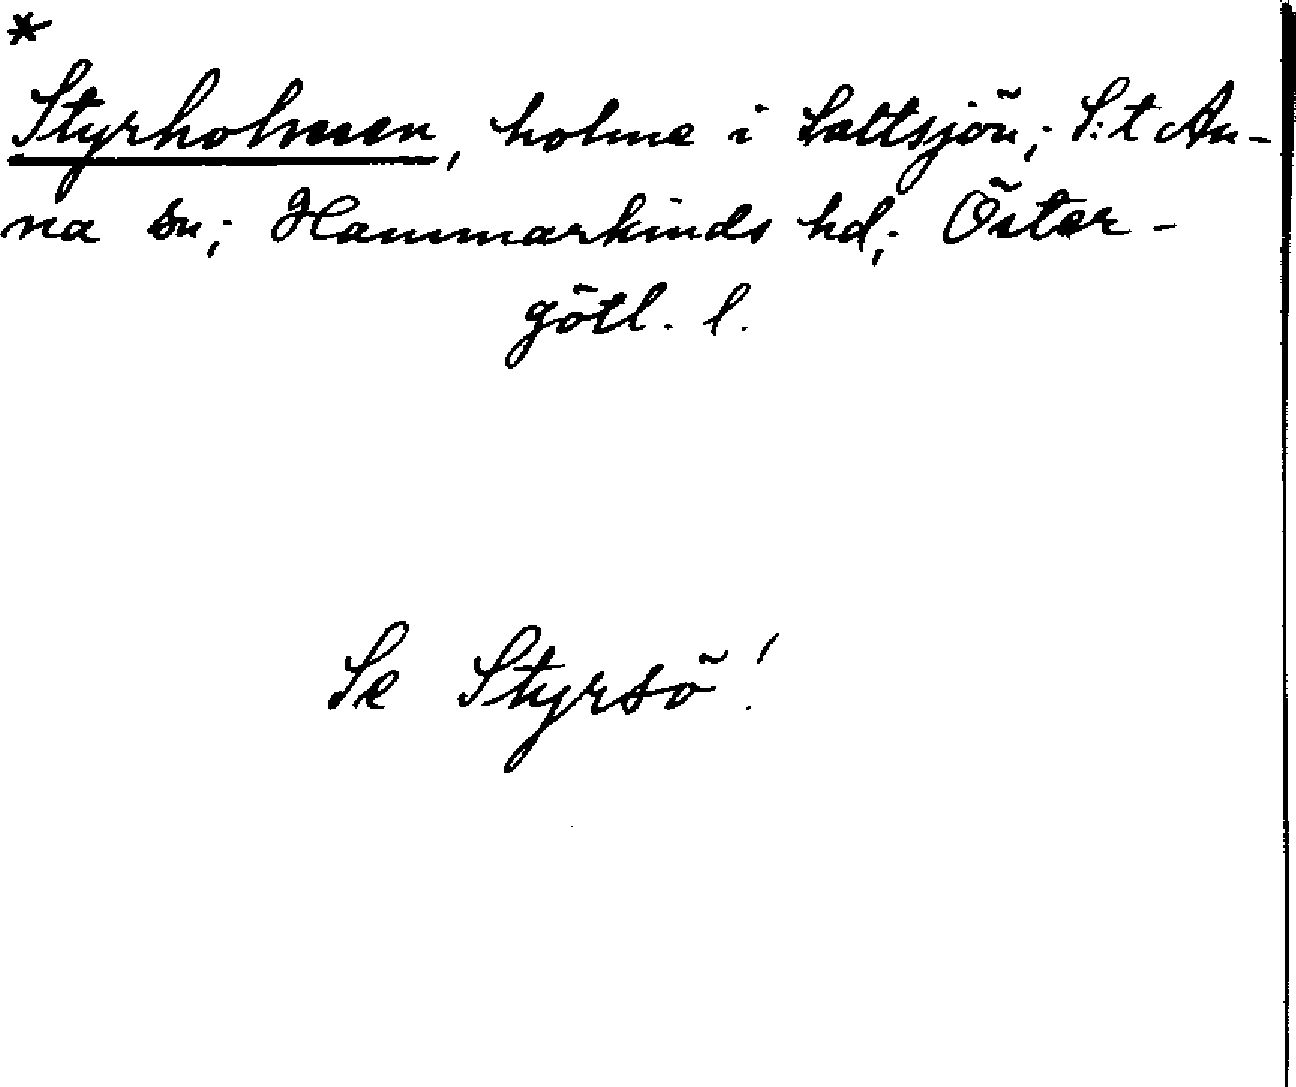 *
Styrholmen, holme i Saltsjön; S:t An-
na sn; Hammarkinds hd; Öster-
götl. l.
Se Styrsö!